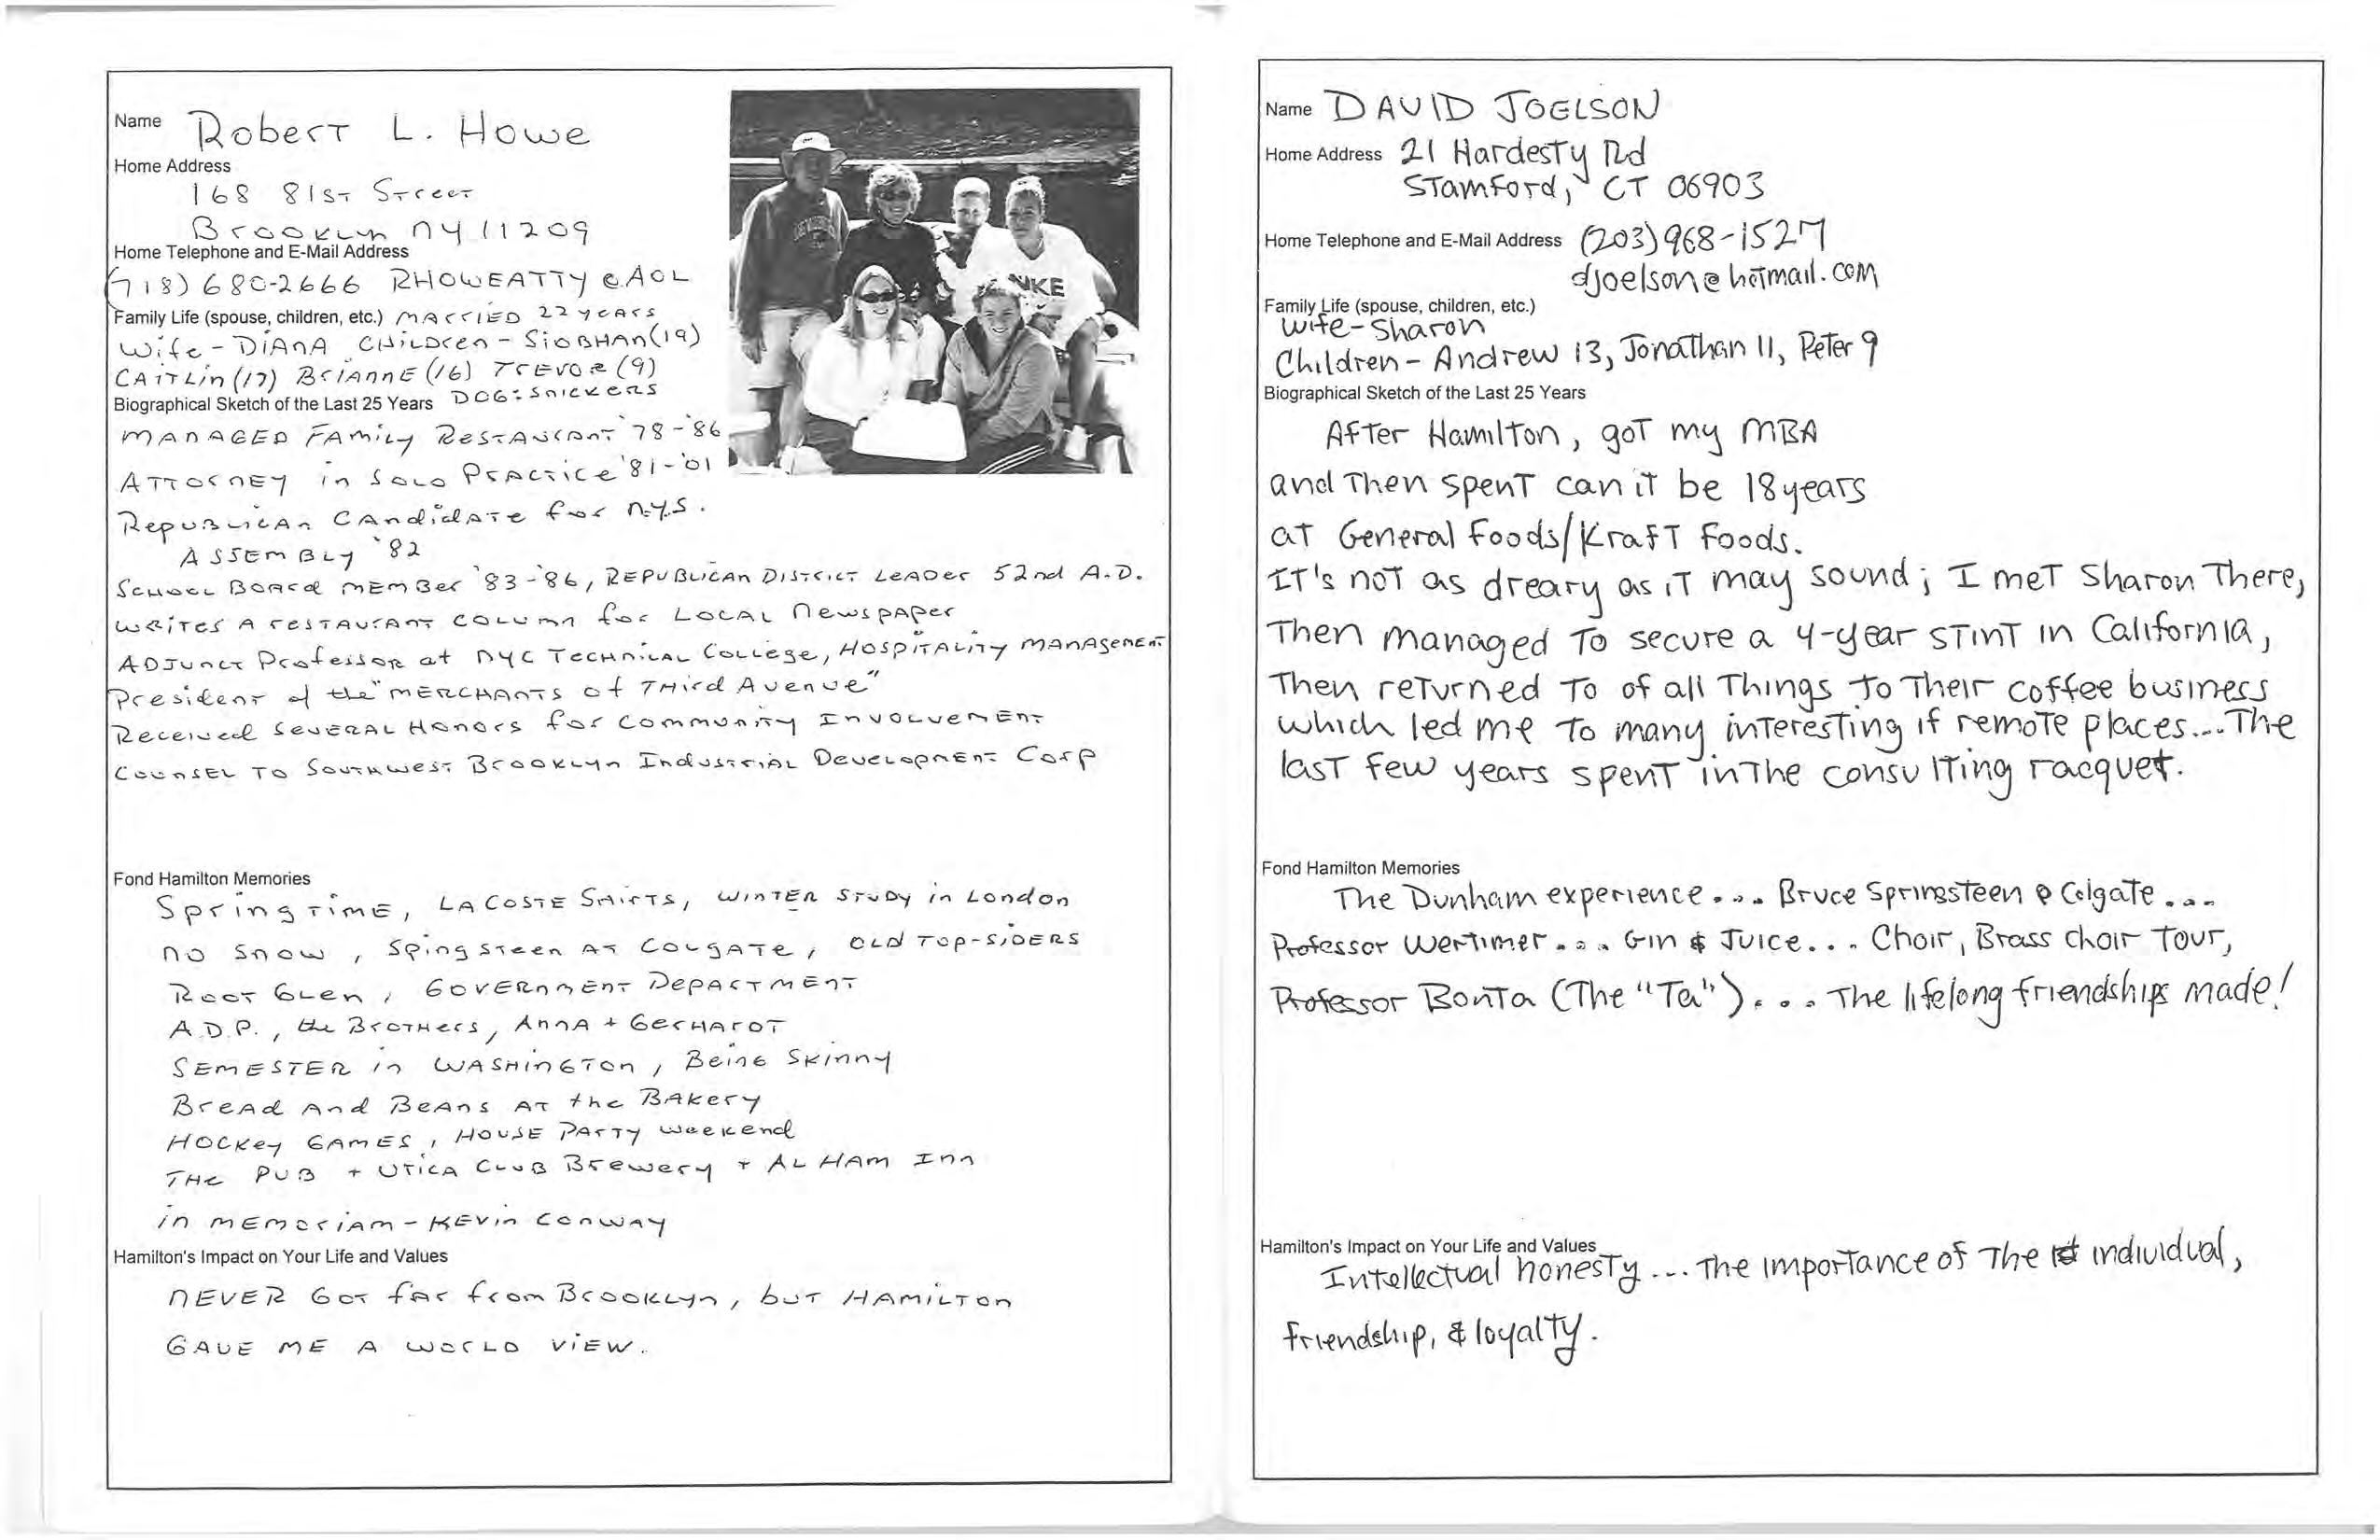 Name Robert L. Howe
Home Address
168 81st Street
Brooklyn NY 11209
Home Telephone and E-Mail Address
(718) 680-2666 RHOWEATTY @ AOL
Family Life (spouse, children, etc.) MARRIED 22 years
Wife - DIANA Children - SIOBHAN (19)
CAITLIN (17) BRIANNE (16) TREVOR (9)
Biographical Sketch of the Last 25 Years DOG: Snickers
MANAGED FAMILY RESTAURANT '78-'86
ATTORNEY in Solo Practice '81-'01
Republican Candidate for N.Y.S.
ASSEMBLY '82
School Board member '83-'86, REPUBLICAN DISTRICT LEADER 52nd A.D.
writes A restaurant column for LOCAL Newspaper
ADJUNCT Professor at NYC Technical College, HOSPITALITY MANAGEMENT
President of the "MERCHANTS of Third Avenue"
Received SEVERAL Honors for Community Involvement
Counsel to Southwest Brooklyn Industrial Development Corp
Fond Hamilton Memories
Springtime, LACOSTE Shirts, WINTER STUDY in London
no snow, Spingsteen AT COLGATE, OLD TOP-SIDERS
Root Glen, GOVERNMENT Department
A.D.P., the Brothers, Anna + Gerhardt
SEMESTER in WASHINGTON, Being Skinny
Bread And Beans AT the BAKERY
HOCKEY GAMES, HOUSE PARTY weekend
THE PUB + UTICA CLUB Brewery + ALHAM Inn
in memoriam - KEVIN CONWAY
Hamilton's Impact on Your Life and Values
NEVER GOT far from Brooklyn, but HAMILTON
GAVE ME A WORLD VIEW.
Name DAVID JOELSON
Home Address 21 Hardesty Rd
Stamford, CT 06903
Home Telephone and E-Mail Address (203) 968-1527
djoelson@hotmail.com
Family Life (spouse, children, etc.)
wife - Sharon
Children - Andrew 13, Jonathan 11, Peter 9
Biographical Sketch of the Last 25 Years
After Hamilton, got my MBA
and then spent can it be 18 years
at General Foods/Kraft Foods.
It's not as dreary as it may sound; I met Sharon there,
then managed to secure a 4-year stint in California,
then returned to of all things to their coffee business
which led me to many interesting if remote places... The
last few years spent in the consulting racquet.
Fond Hamilton Memories
The Dunham experience.... Bruce Springsteen @ Colgate....
Professor Wertimer.... Gin & Juice... Choir, Brass choir Tour,
Professor Bonta (The "Ta").... The lifelong friendships made!
Hamilton's Impact on Your Life and Values
Intellectual honesty... the importance of the individual,
friendship, & loyalty.